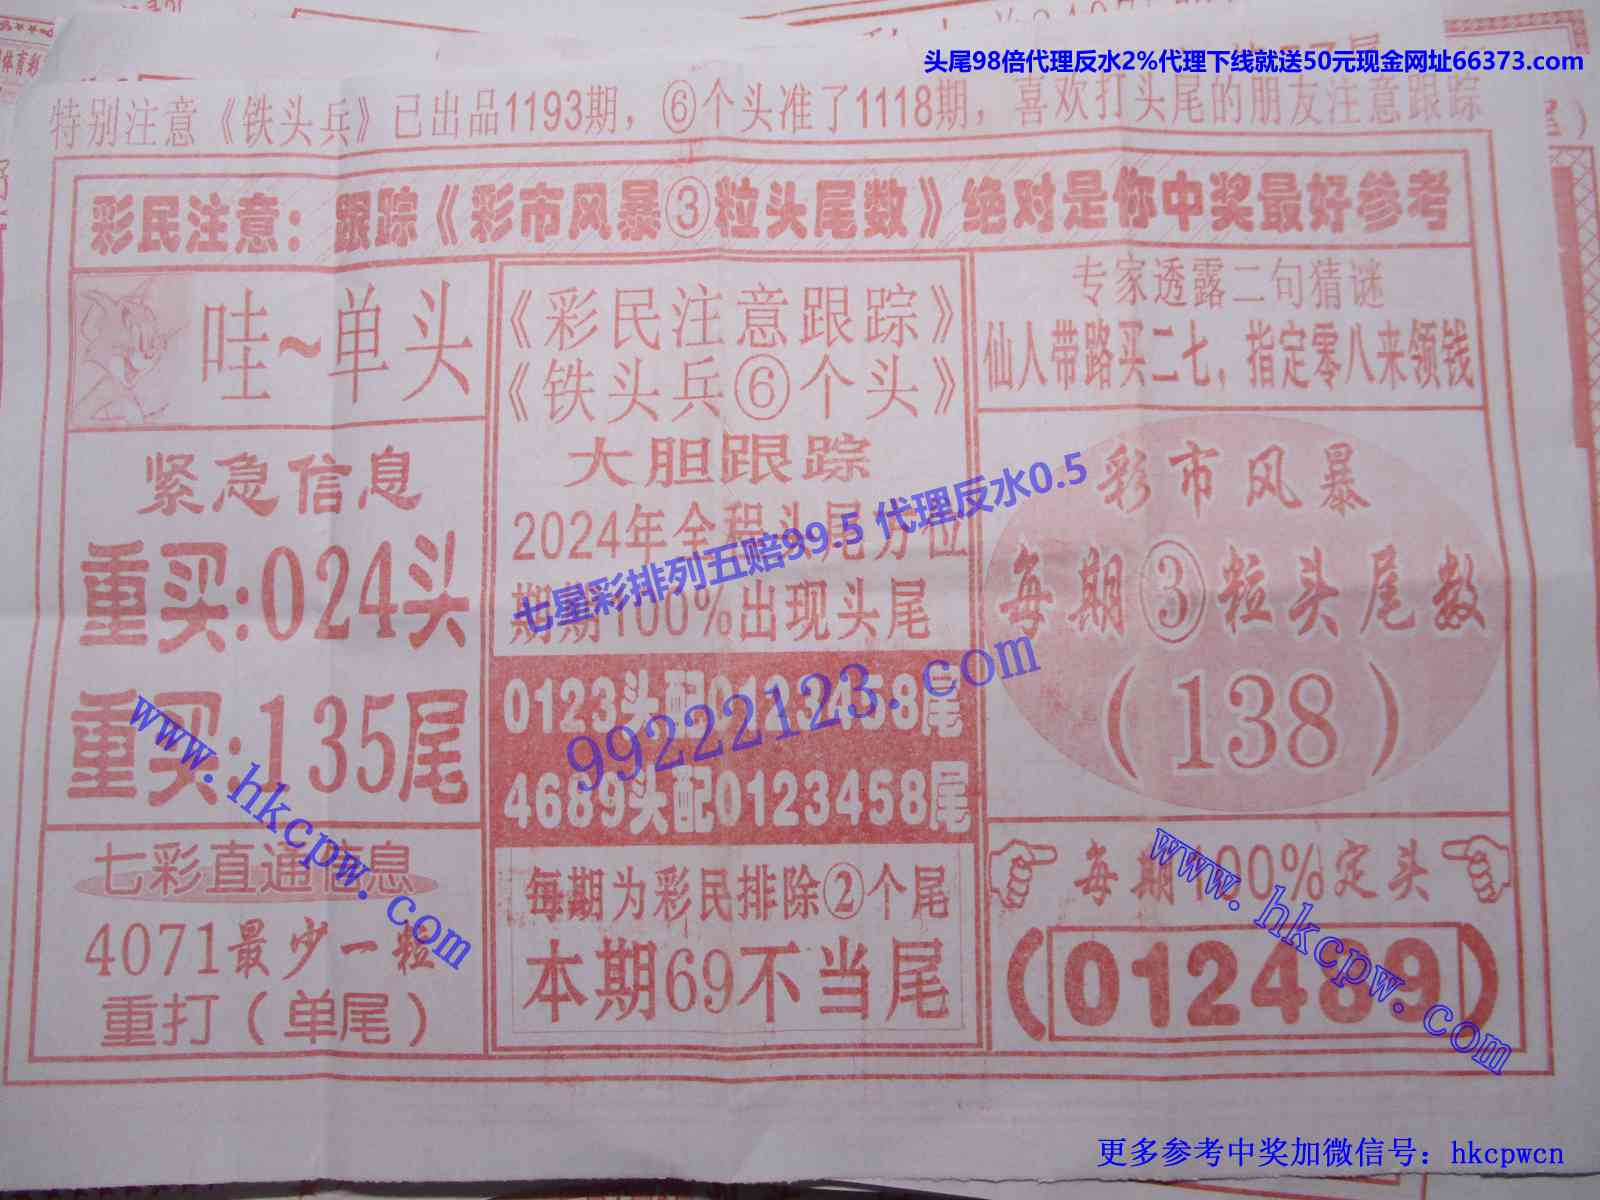 头尾98倍代理反水2%代理下线就送50元现金网址66373.com
特别注意《铁头兵》已出品1193期，⑥个头准了1118期，喜欢打头尾的朋友注意跟踪
彩民注意：跟踪《彩市风暴③粒头尾数》绝对是你中奖最好参考
哇~单头
紧急信息
重买:024头
重买:135尾
七彩直通信息
4071最少一粒
重打（单尾）
《彩民注意跟踪》
《铁头兵⑥个头》
大胆跟踪
2024年全程头尾方位
期期100%出现头尾
0123头配0123458尾
4689头配0123458尾
每期为彩民排除②个尾
本期69不当尾
专家透露二句猜谜
仙人带路买二七，指定零八来领钱
彩市风暴
每期③粒头尾数
（138）
每期100%定头
（012489）
七星彩排列五赔99.5 代理反水0.5
99222123.com
www.hkcpw.com
www.hkcpw.com
更多参考中奖加微信号：hkcpwcn
体育彩
尾）